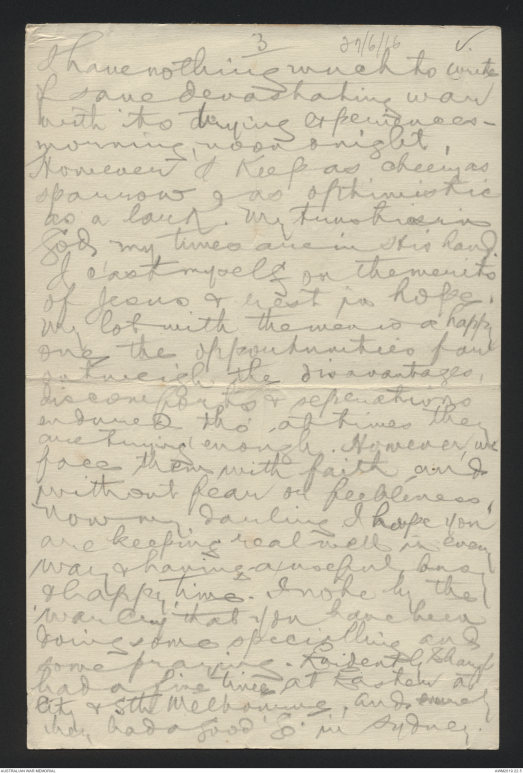 3 27/6/16
I have nothing much to write
of save devastating war
with its trying experiences -
morning, noon & night.
However I keep as cheery as
sparrow & as optimistic
as a lark. My trust is in
God, my times are in His hand.
I cast myself on the merits
of Jesus & rest in hope.
My lot with the men is a happy
one the opportunities far
outweigh the disavantages,
discomforts & seperations
endured tho' at times they
are trying enough. However we
face them with faith and
without fear or feebleness.
Now my darling I hope you
are keeping real well in every
way & having a useful busy
& happy time. I note by the
War Cry that you have been
doing some specialling and
some praying. Evidently
had a fine time at Eastern
City & Sth Melbourne, and surely
they had a good "go" in Sydney.
AUSTRALIAN WAR MEMORIAL